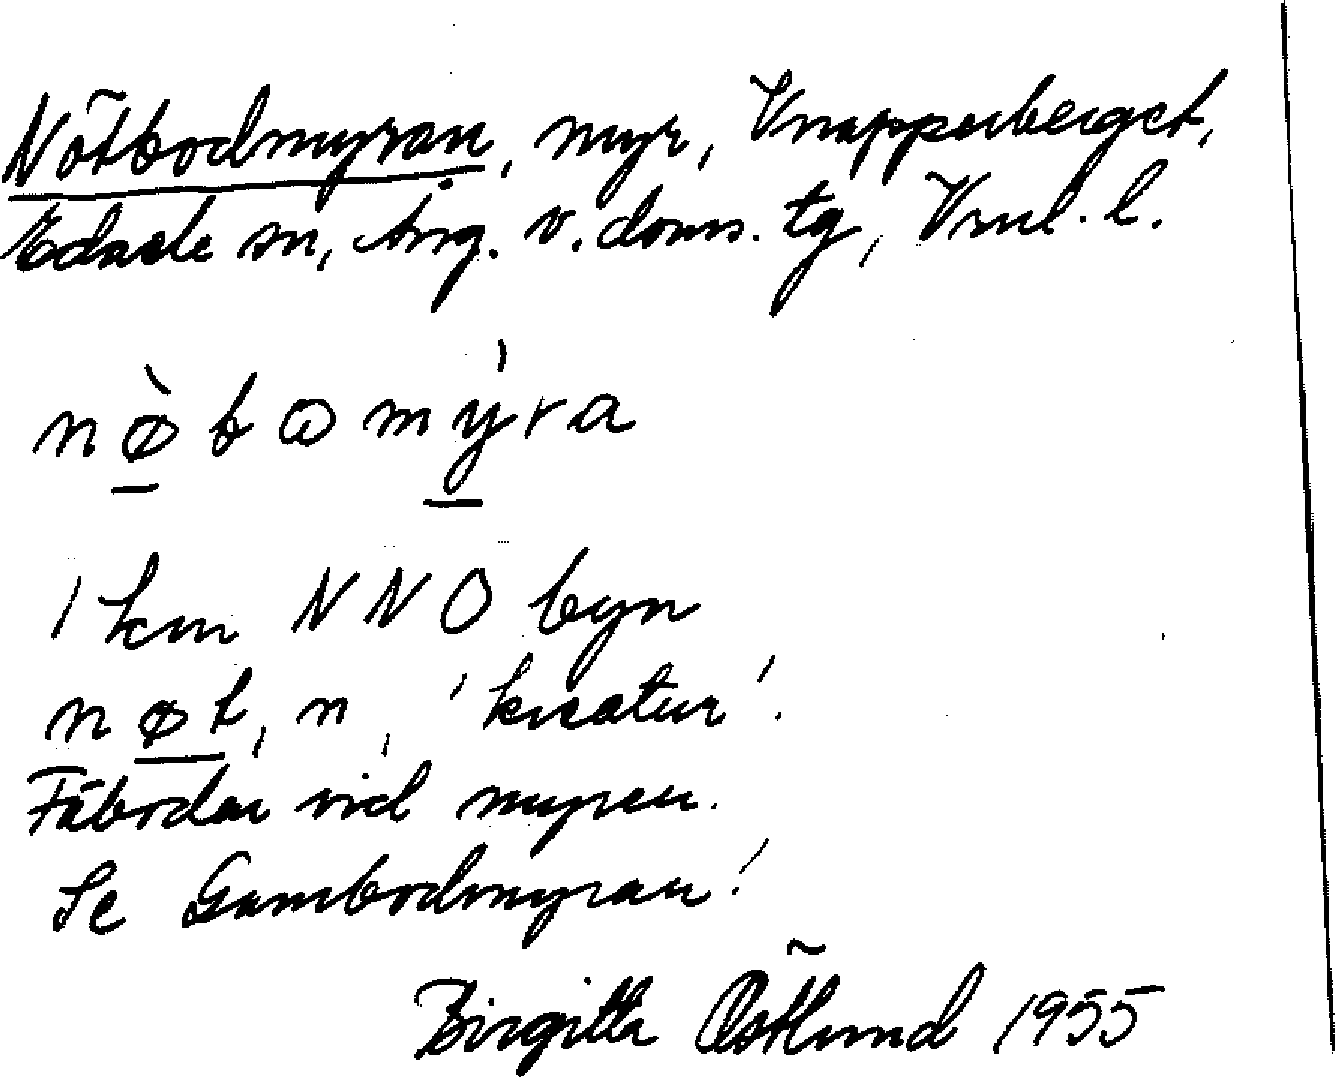 Nötbodmyran, myr, Knapperberget,
Edsele sn, Ång. v. doms. tg, Vnl. l.
nø̀bɷmýra
1 km NNO byn
nøt, n, 'kreatur'.
Fäbodar vid myren.
Se Gambodmyran!
Birgitta Östlund 1955